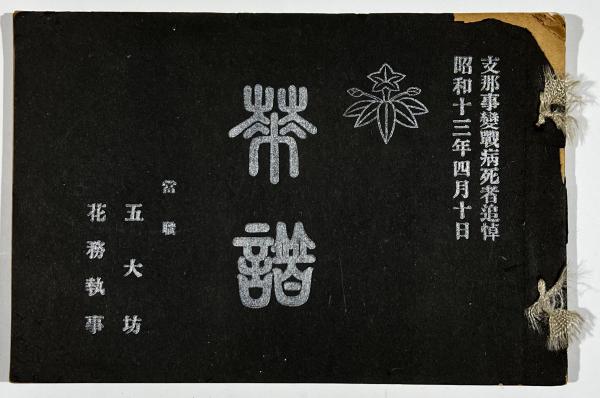 支那事變戰病死者追悼
昭和十三年四月十日
華譜
當職
五大坊
花務執事